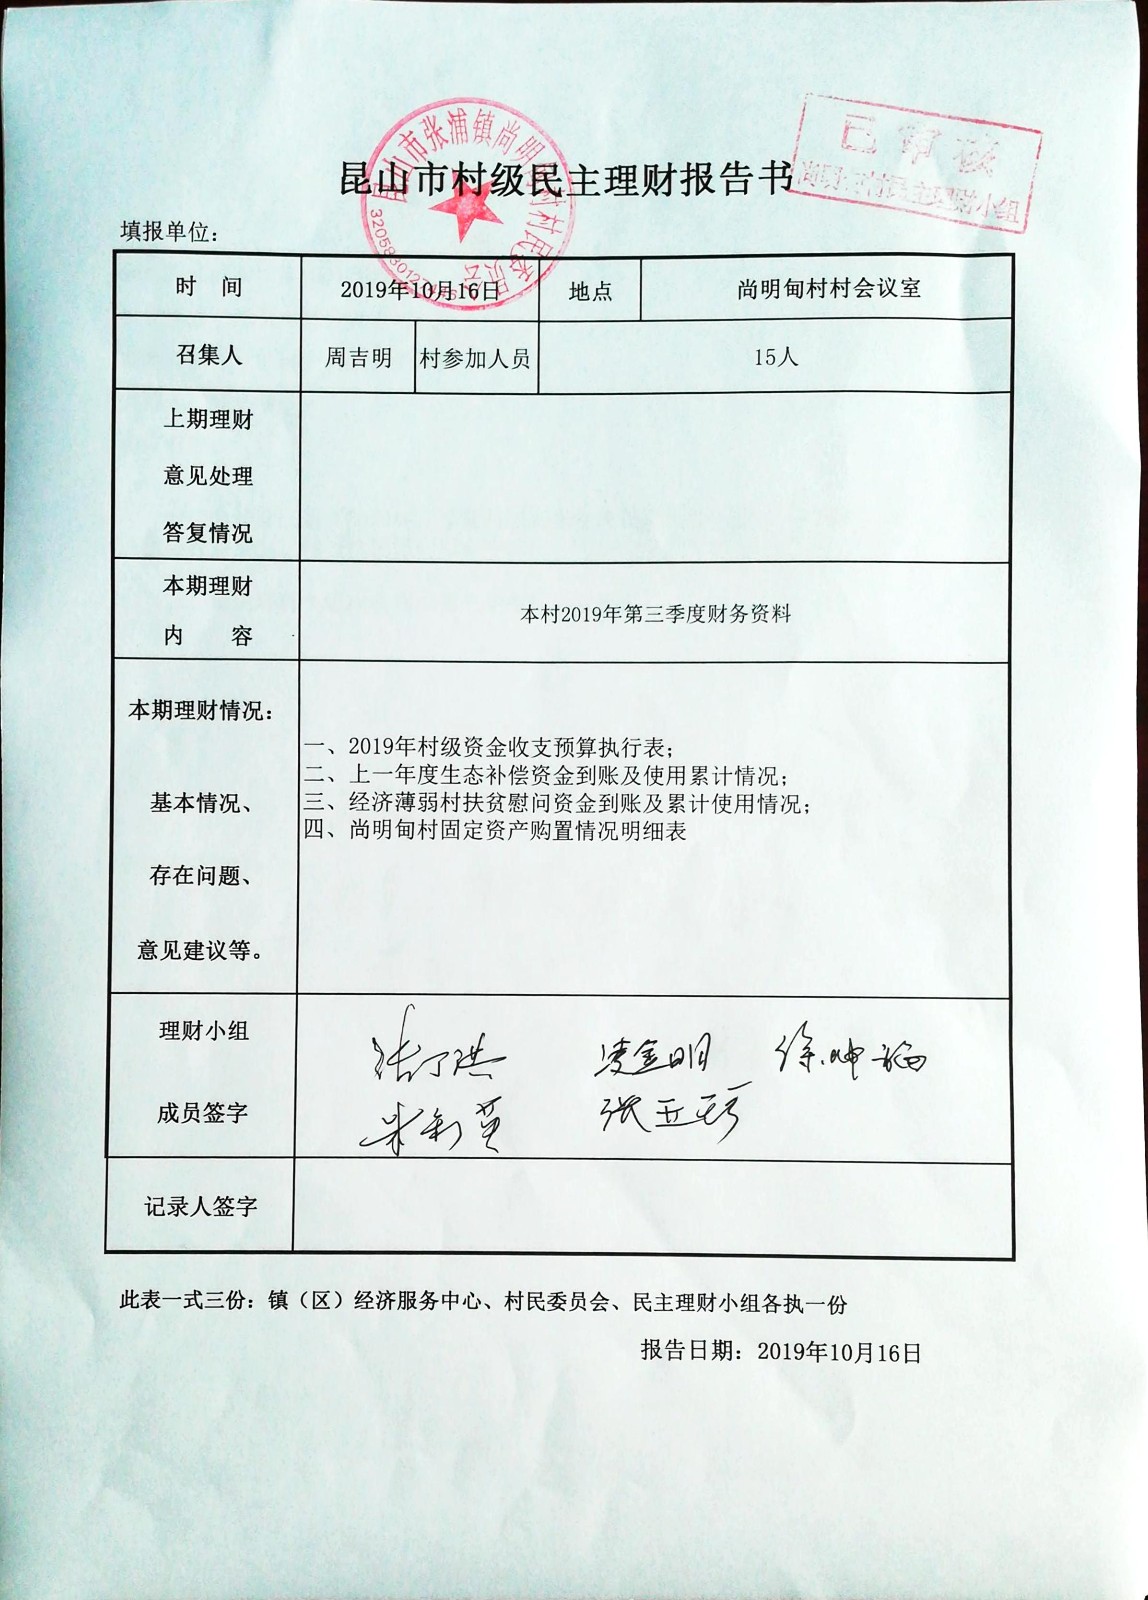 昆山市张浦镇尚明甸村村民委员会
已审核
尚明甸村民主理财小组
昆山市村级民主理财报告书
填报单位：
时 间 2019年10月16日 地点 尚明甸村村会议室
召集人 周吉明 村参加人员 15人
上期理财
意见处理
答复情况
本期理财
内 容
本村2019年第三季度财务资料
本期理财情况：
基本情况、
存在问题、
意见建议等。
一、2019年村级资金收支预算执行表；
二、上一年度生态补偿资金到账及使用累计情况；
三、经济薄弱村扶贫慰问资金到账及累计使用情况；
四、尚明甸村固定资产购置情况明细表
理财小组
成员签字
凌金明 徐坤福
记录人签字
此表一式三份：镇（区）经济服务中心、村民委员会、民主理财小组各执一份
报告日期：2019年10月16日